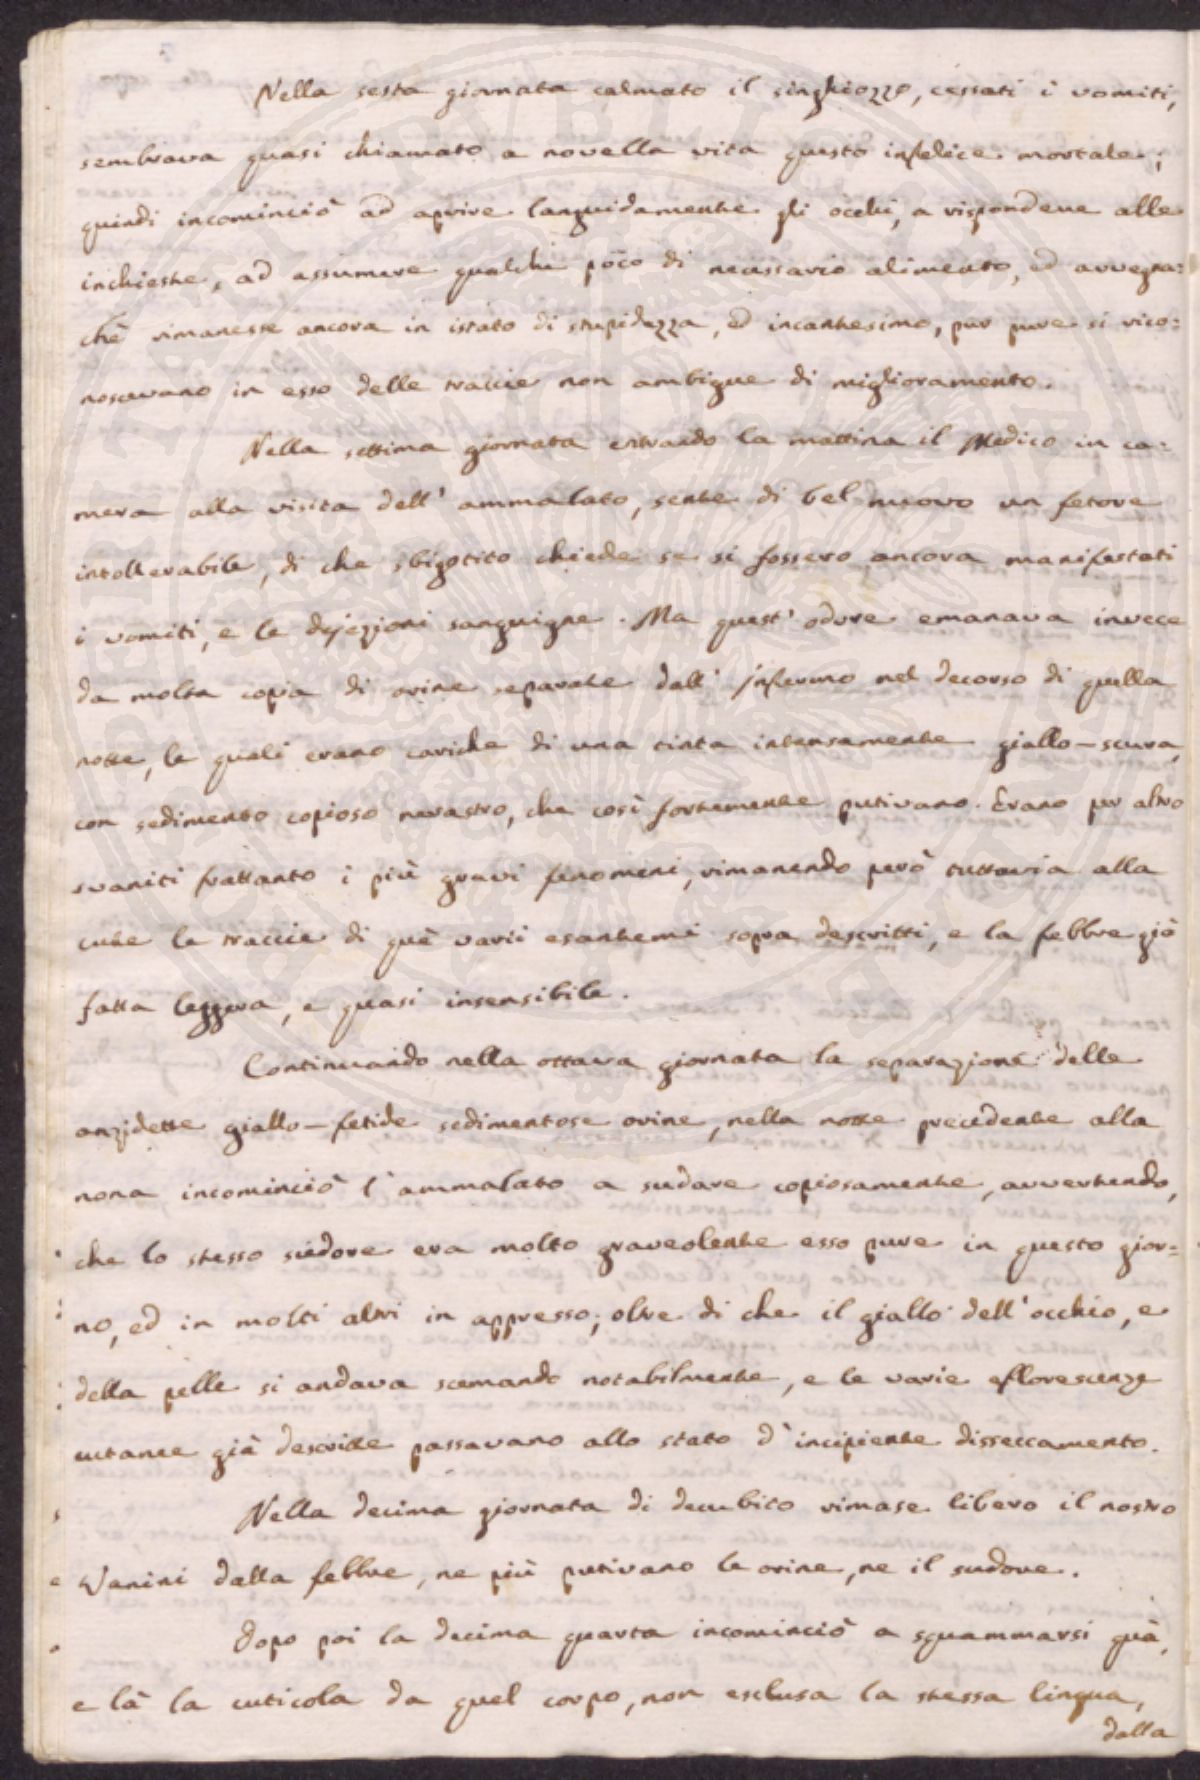 Nella sesta giornata calmato il singhiozzo, cessati i vomiti,
sembrava quasi chiamato a novella vita questo infelice mortale;
quindi incominciò ad aprire languidamente gli occhi, a rispondere alle
inchieste, ad assumere qualche poco di necessario alimento, ed avvegna=
chè rimanesse ancora in istato di stupidezza, ed incantesimo, pur pure si rico=
noscevano in esso delle traccie non ambigue di miglioramento.
Nella settima giornata entrando la mattina il Medico in ca=
mera alla visita dell' ammalato, sente di bel nuovo un fetore
intollerabile, di che sbigotito chiede se si fossero ancora manifestati
i vomiti, e le dejezioni sanguigne. Ma quest' odore emanava invece
da molta copia di orine separate dall' Infermo nel decorso di quella
notte, le quali erano cariche di una tinta intensamente giallo-scura,
con sedimento copioso nerastro, che così fortemente putivano. Erano per altro
svaniti frattanto i più gravi fenomeni, rimanendo però tuttavia alla
cute le traccie di què varii esantemi sopra descritti, e la febbre già
fatta leggera, e quasi insensibile.
Continuando nella ottava giornata la separazione delle
anzidette giallo-fetide sedimentose orine, nella notte precedente alla
nona incominciò l' ammalato a sudare copiosamente, avvertendo,
che lo stesso sudore era molto graveolente esso pure in questo gior=
no, ed in molti altri in appresso; oltre di che il giallo dell' occhio, e
della pelle si andava scemando notabilmente, e le varie eflorescenze
cutanee già descritte passavano allo stato d' incipiente disseccamento.
Nella decima giornata di decubito rimase libero il nostro
Vanini dalla febbre, ne più putivano le orine, ne il sudore.
Dopo poi la decima quarta incominciò a squammarsi quà,
e là la cuticola da quel corpo, non esclusa la stessa lingua,
dalla